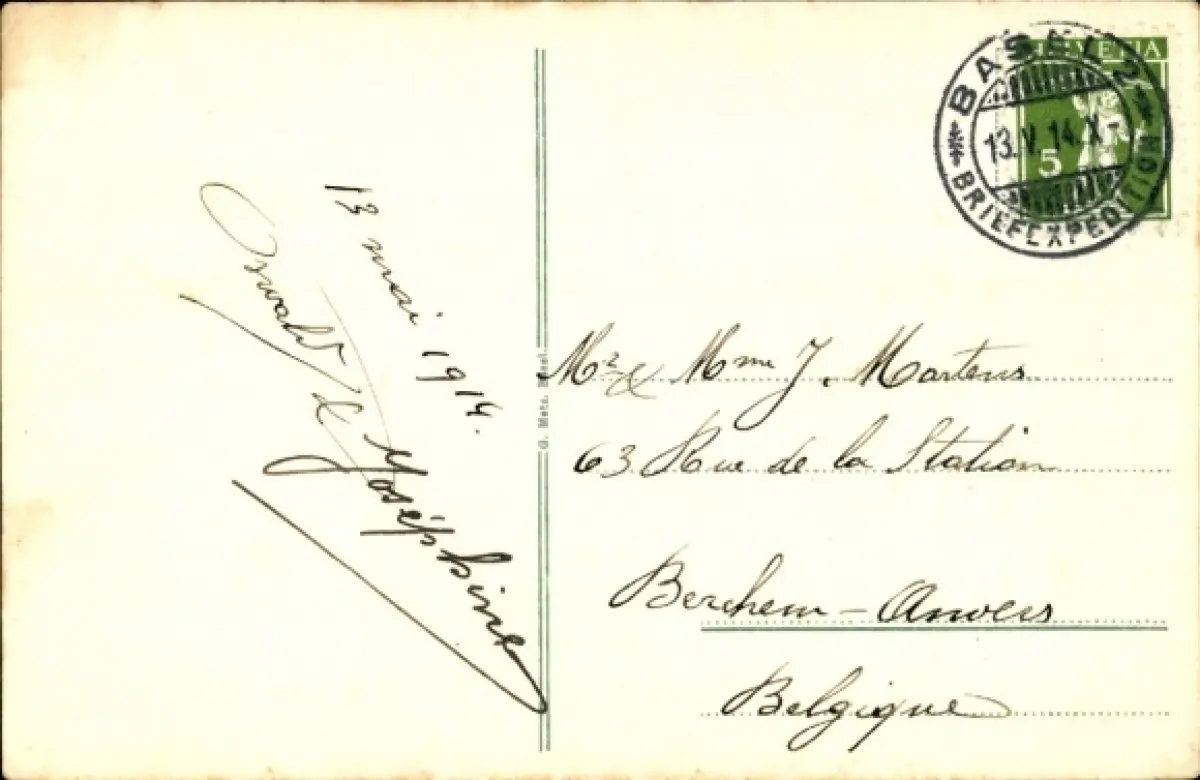 13 mai 1914.
Oswald & Joséphine
G. Metz, Basel.
HELVETIA
5
BASEL 2
13.V.14.X-
BRIEFEXPEDITION
Mr & Mme J. Martens
63 Rue de la Station
Berchem - Anvers
Belgique